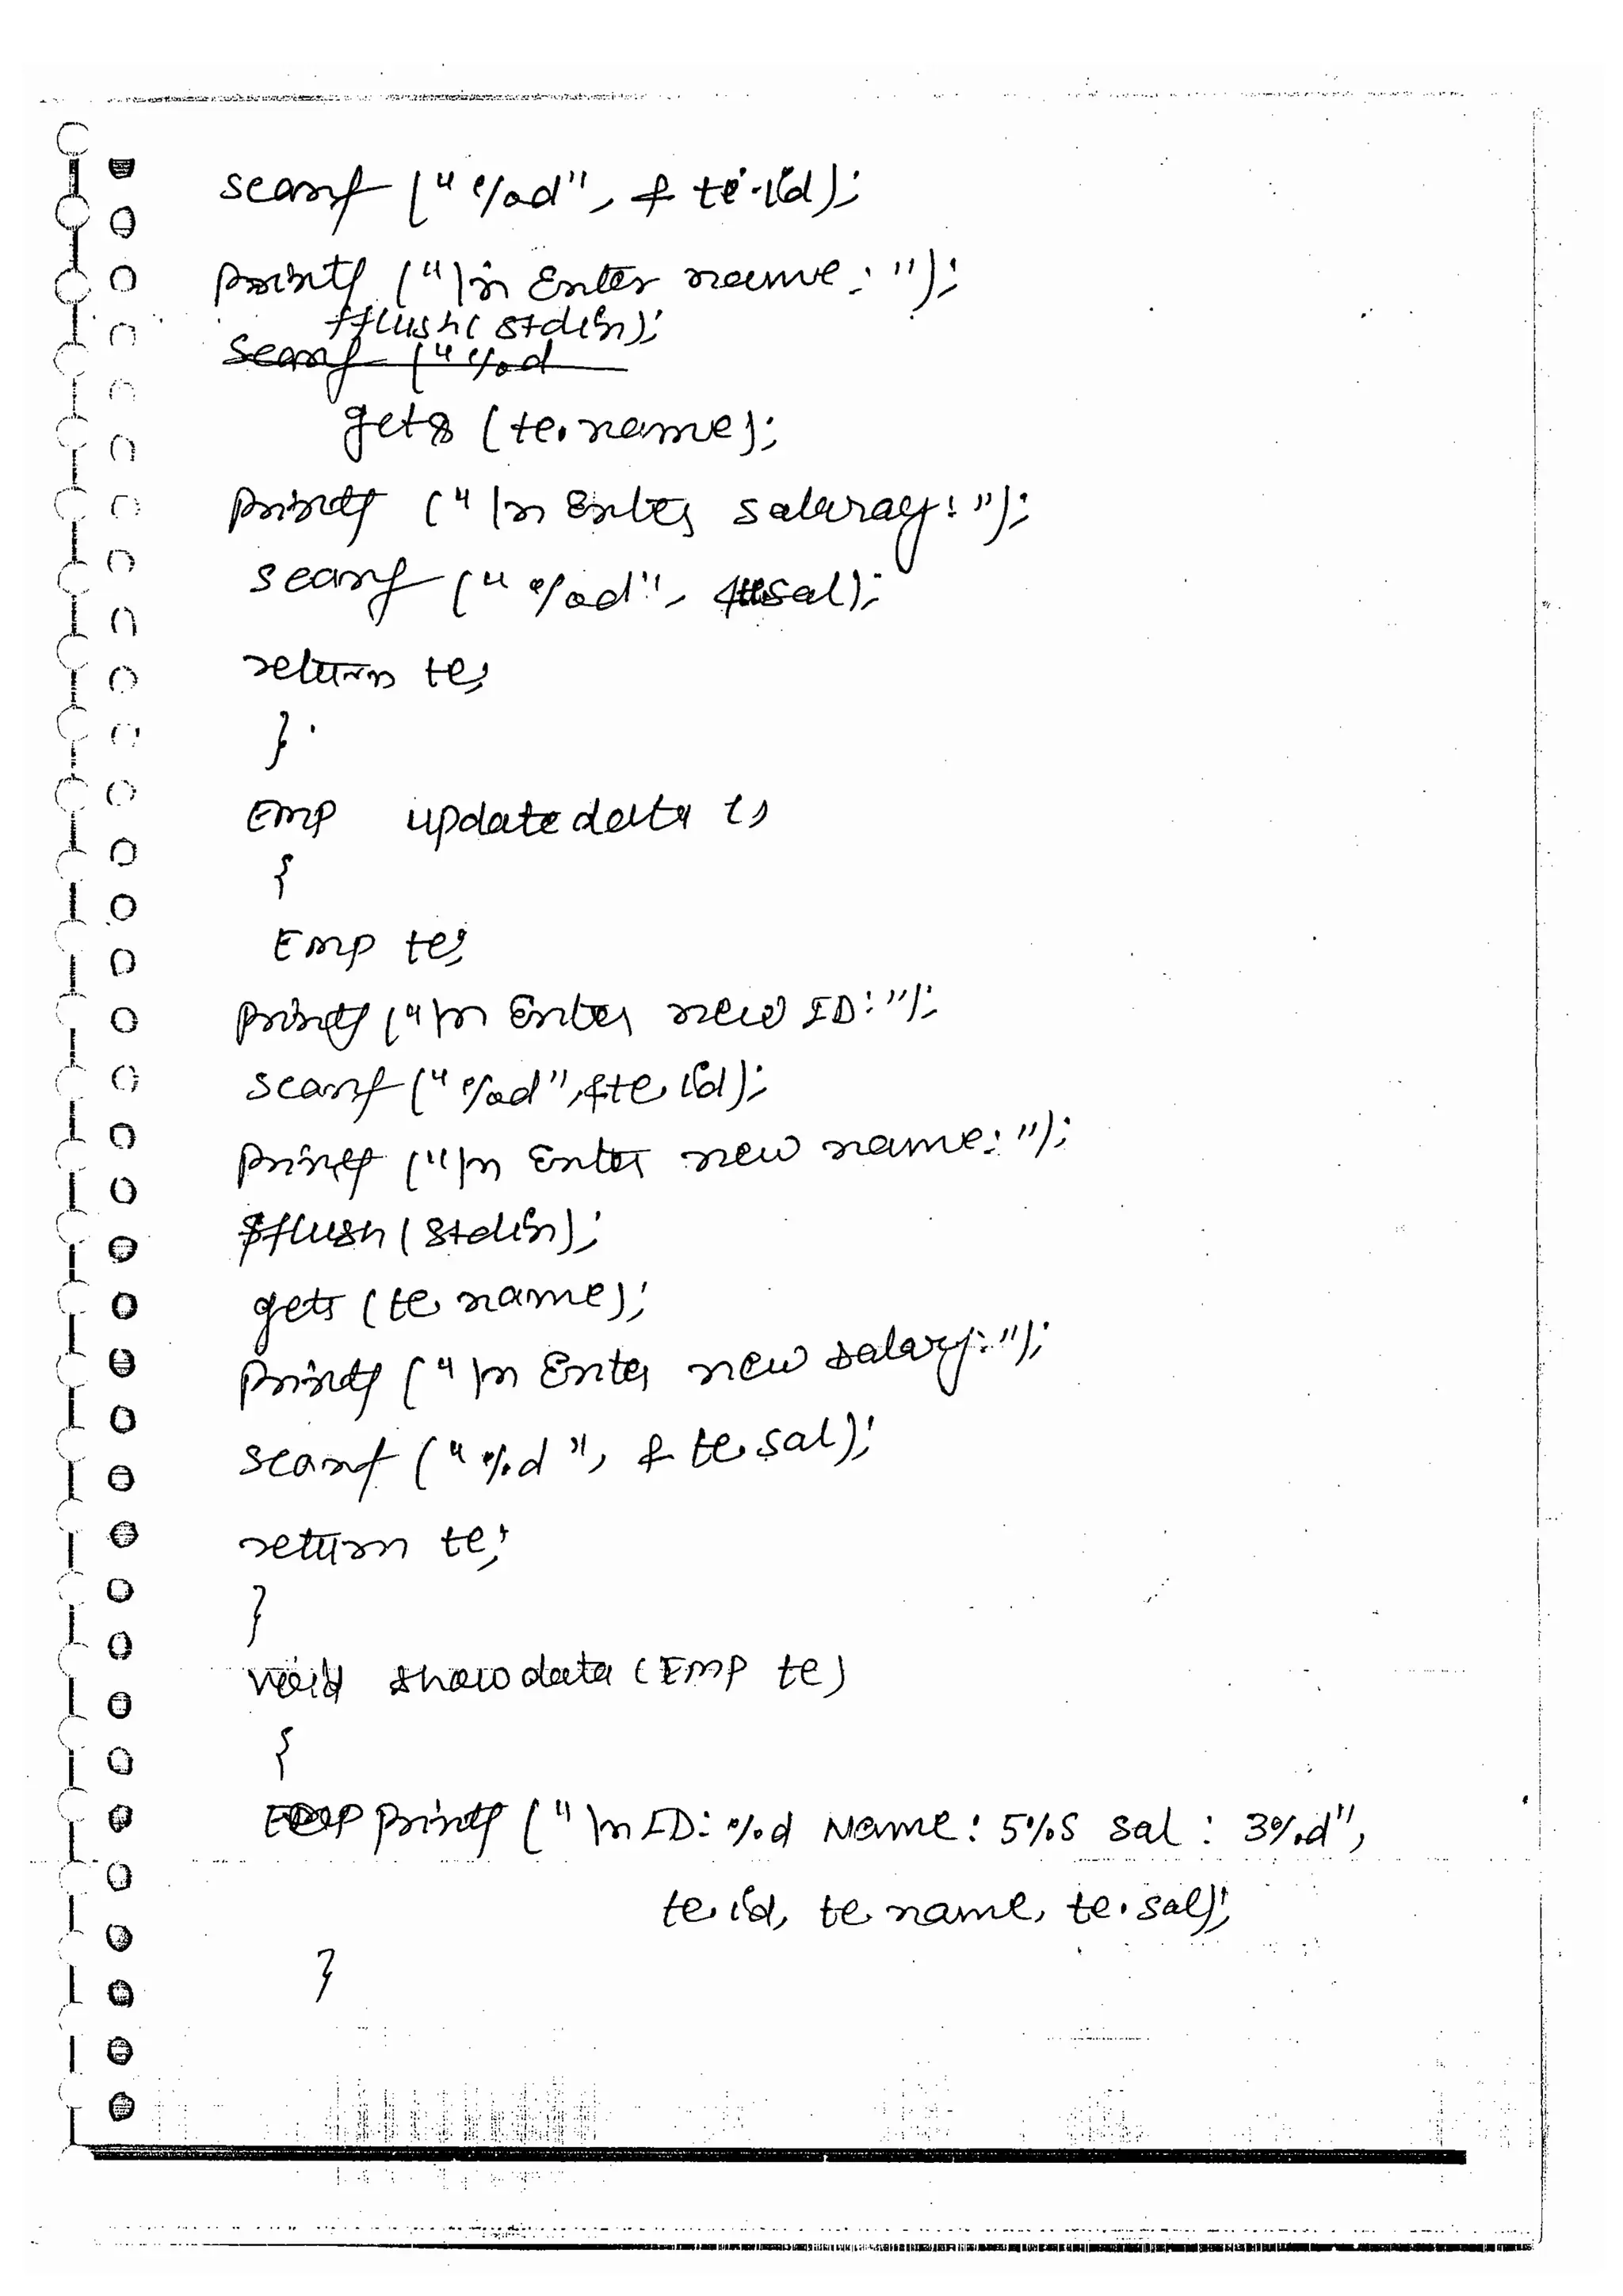 scanf ("%d", & te.id);
printf ("\n Enter name: ");
fflush(stdin);
scanf ("%d
gets (te.name);
printf ("\n Enter salaray: ");
scanf ("%d", sal);
return te;
}
Emp updatedata ()
{
Emp te;
printf ("\n Enter new ID: ");
scanf ("%d", &te.id);
printf ("\n Enter new name: ");
fflush (stdin);
gets (te.name);
printf ("\n Enter new salary: ");
scanf ("%d", & te.sal);
return te;
}
void showdata (Emp te)
{
printf ("\n ID: %d Name: 5%s sal : 3%d",
te.id, te.name, te.sal);
}